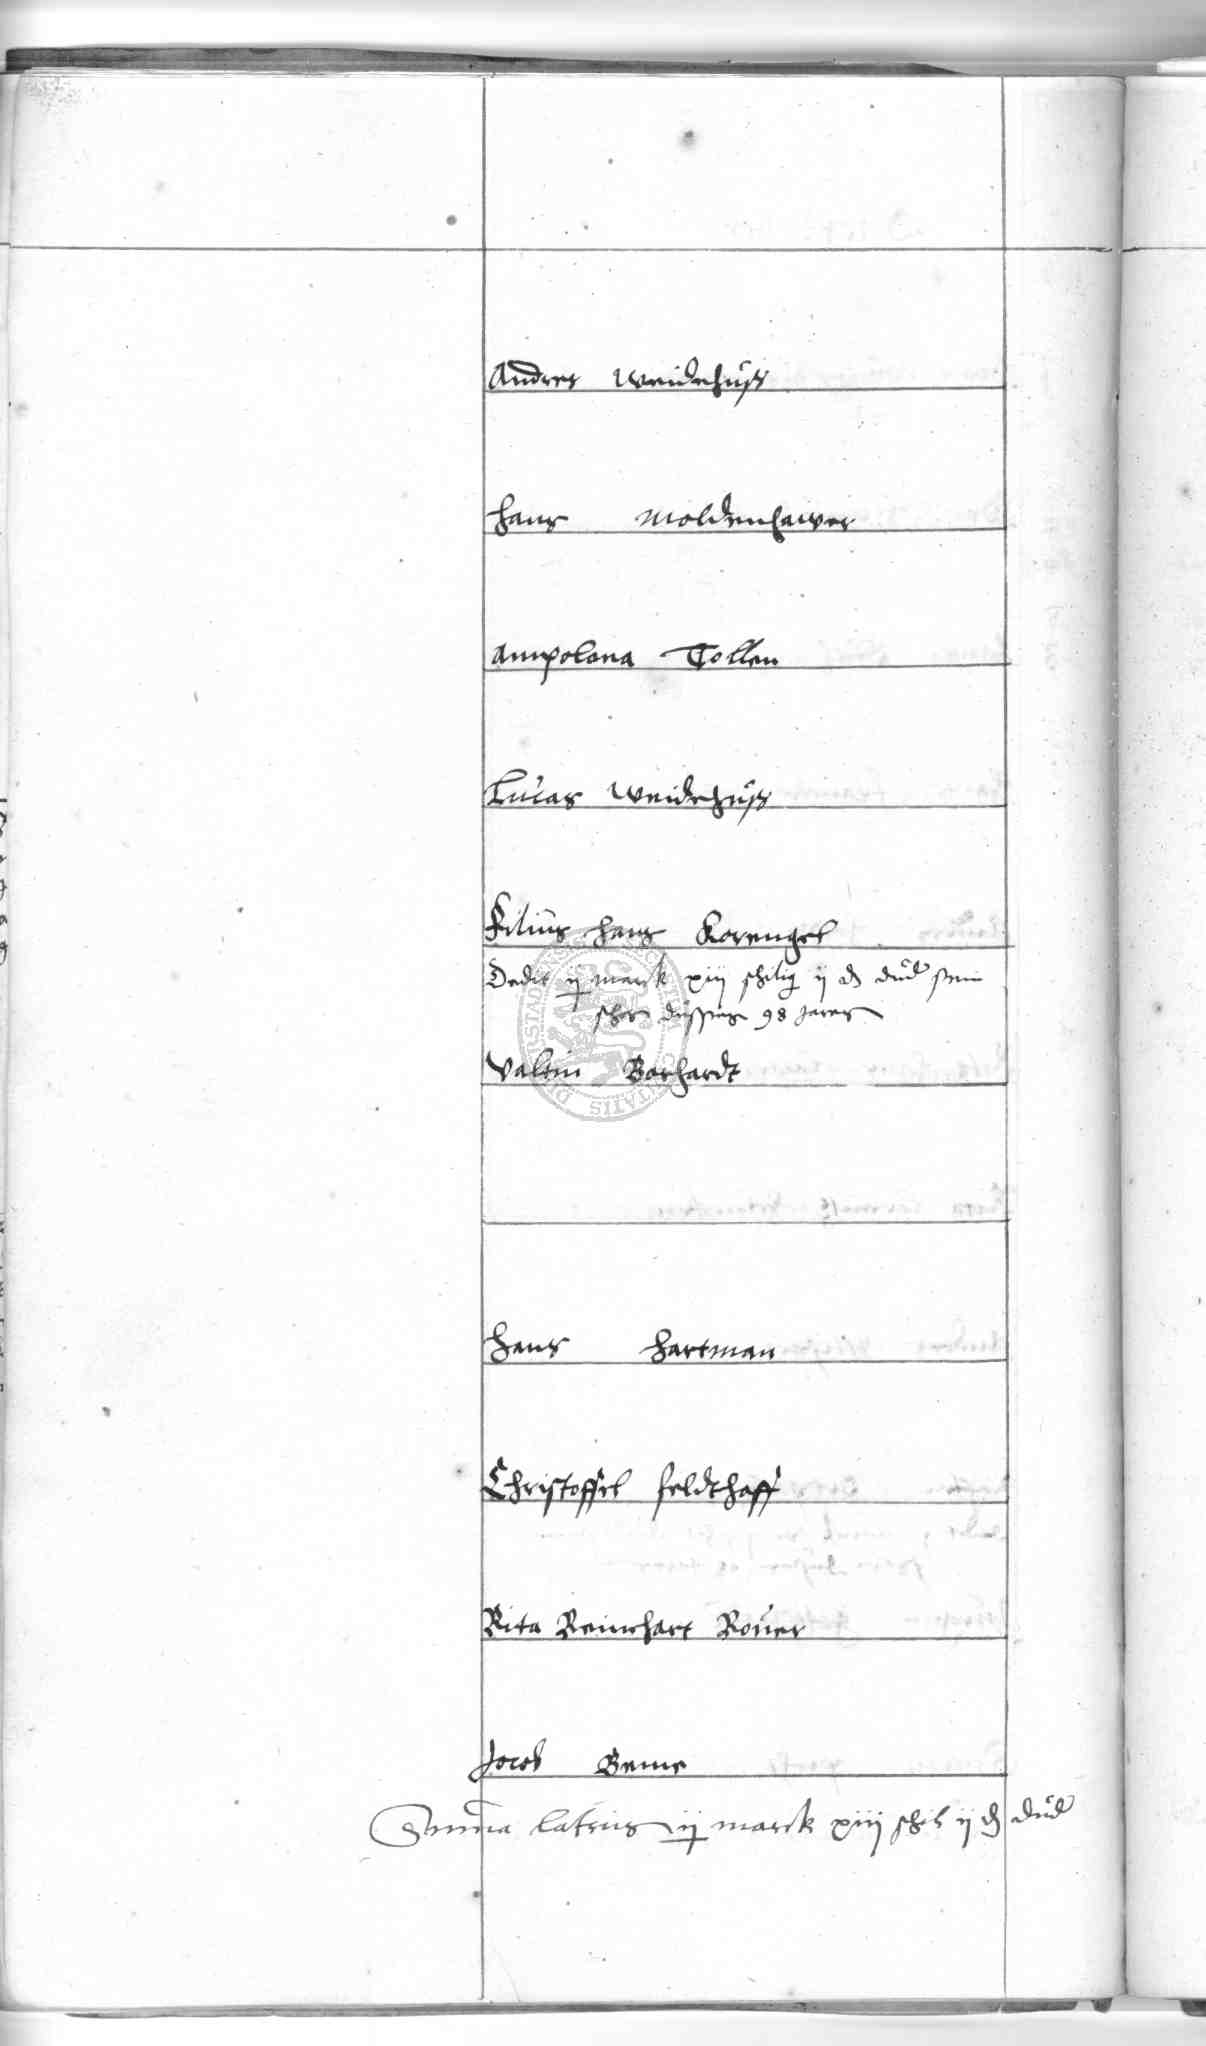 Andres Weidehuß
Hans Moldenhawer
Ampolona Tollen
Lucas Weidehuß
Filius Hans Korengel
Dedit ij marck xiij schilig ij d dud
schos dusses 98 Jares
Valtin Borhardt
Hans Hartman
Christoffel Feldthaff
Rita Reinhart Rouer
Jacob Beme
Summa lateris ij marck xiij schil ij d dud